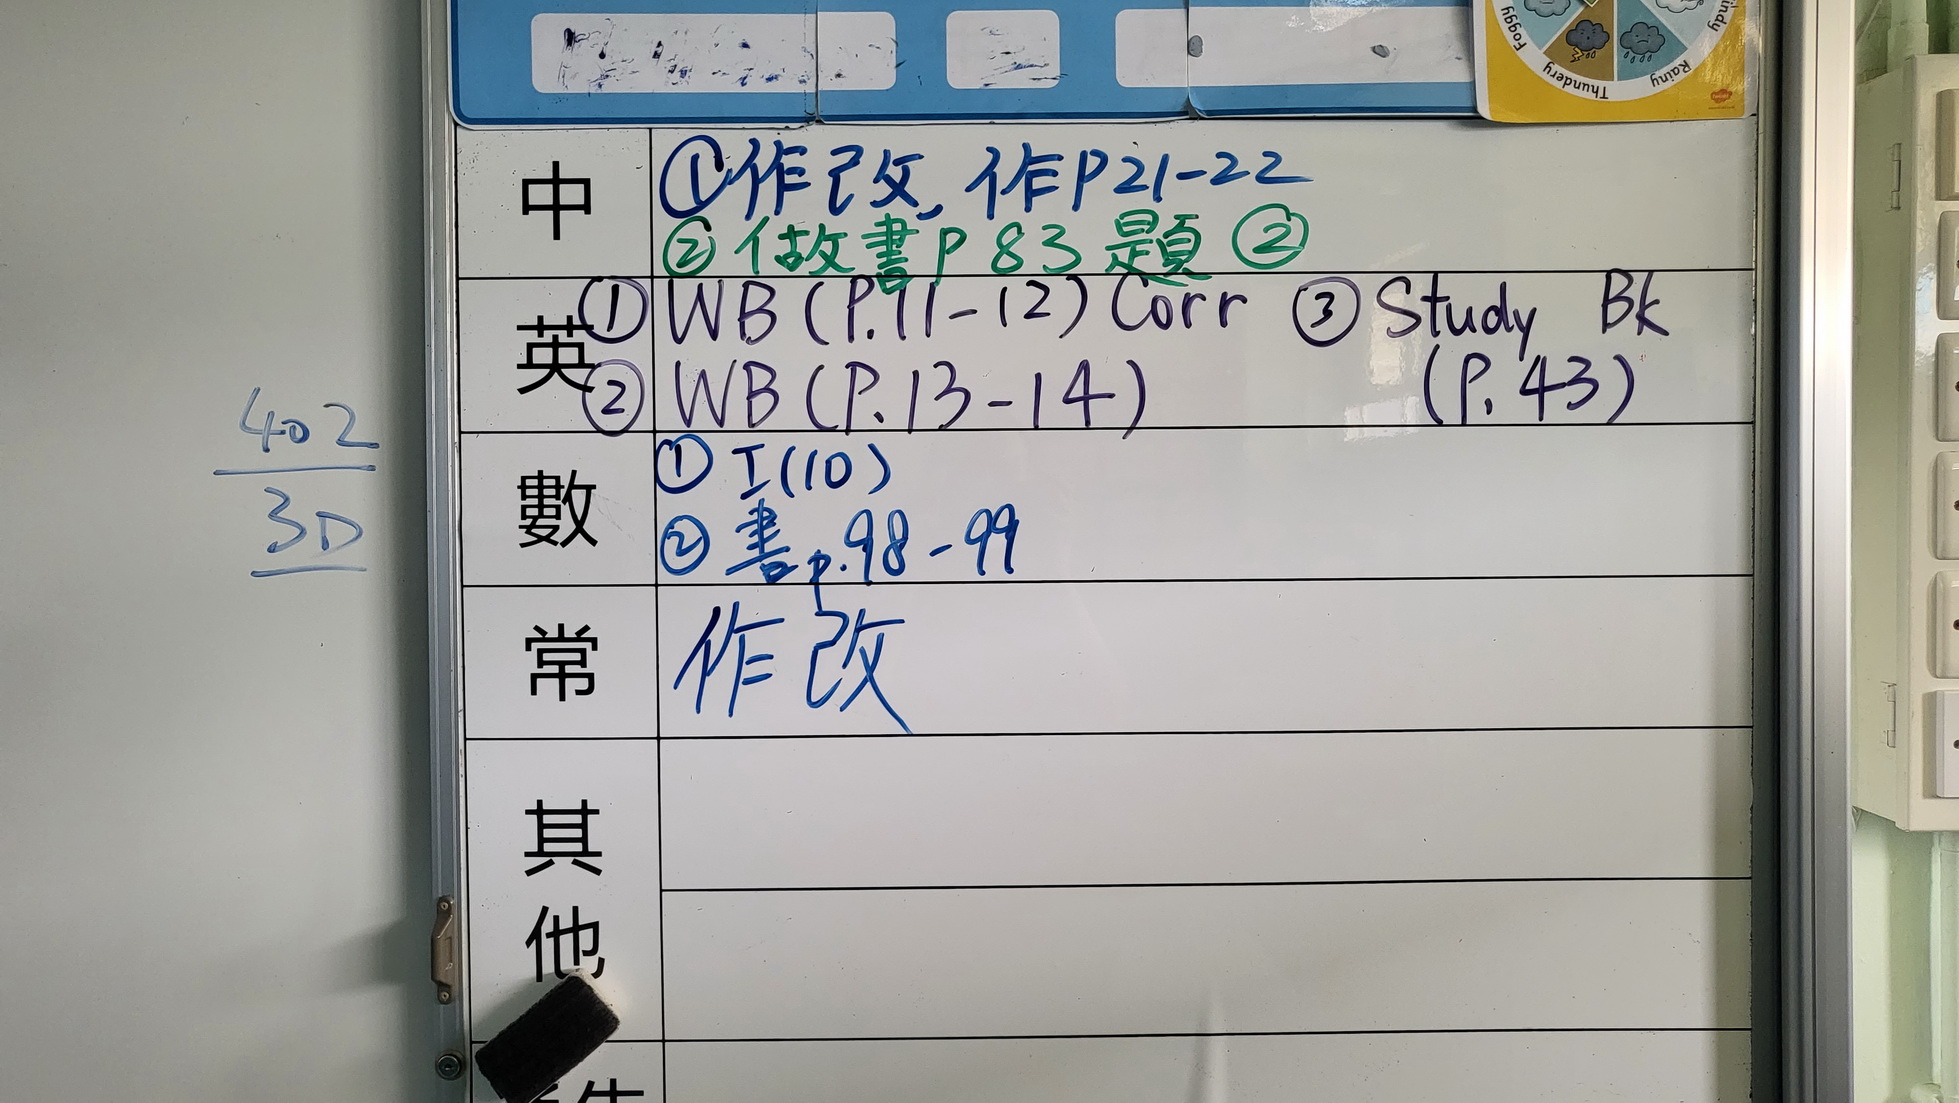 Foggy
Thundery
Rainy
中
①作改, 作P21-22
②做書P83題②
英
①WB (P.11-12) Corr ③Study Bk
②WB (P.13-14) (P.43)
402
3D
數
①工(10)
②書p.98-99
常
作改
其
他